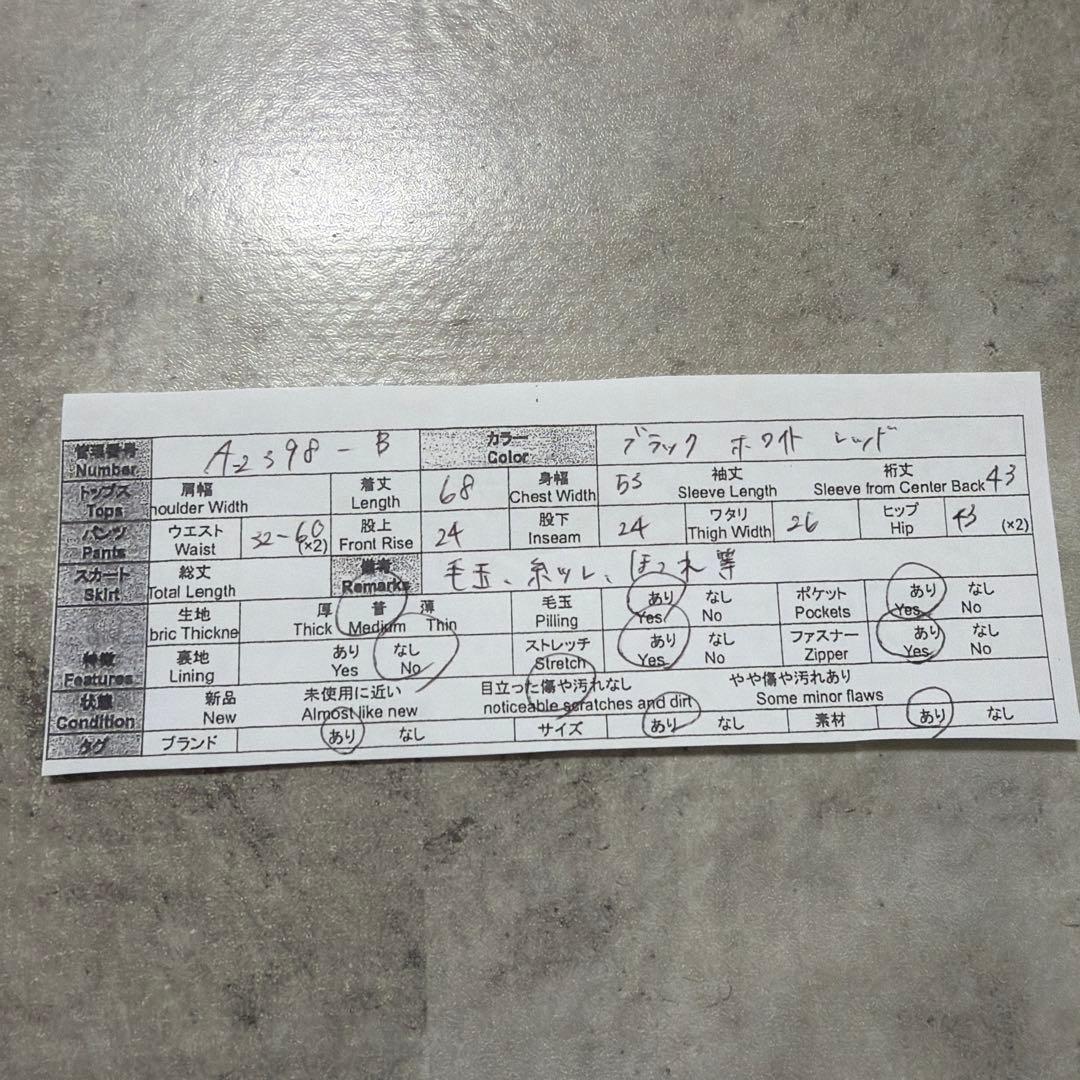 管理番号 A2398-B カラー ブラック ホワイト レッド
Number Color
トップス 肩幅 着丈 68 身幅 53 袖丈 裄丈 43
Tops houlder Width Length Chest Width Sleeve Length Sleeve from Center Back
パンツ ウエスト 32-60 股上 24 股下 24 ワタリ 26 ヒップ 43
Pants Waist (×2) Front Rise Inseam Thigh Width Hip (×2)
スカート 総丈 備考 毛玉、糸ツレ、ほつれ等
Skirt Total Length Remarks
生地 厚 普 薄 毛玉 あり なし ポケット あり なし
bric Thickne Thick Medium Thin Pilling Yes No Pockets Yes No
特徴 裏地 あり なし ストレッチ あり なし ファスナー あり なし
Features Lining Yes No Stretch Yes No Zipper Yes No
状態 新品 未使用に近い 目立った傷や汚れなし やや傷や汚れあり
Condition New Almost like new noticeable scratches and dirt Some minor flaws
タグ ブランド あり なし サイズ あり なし 素材 あり なし